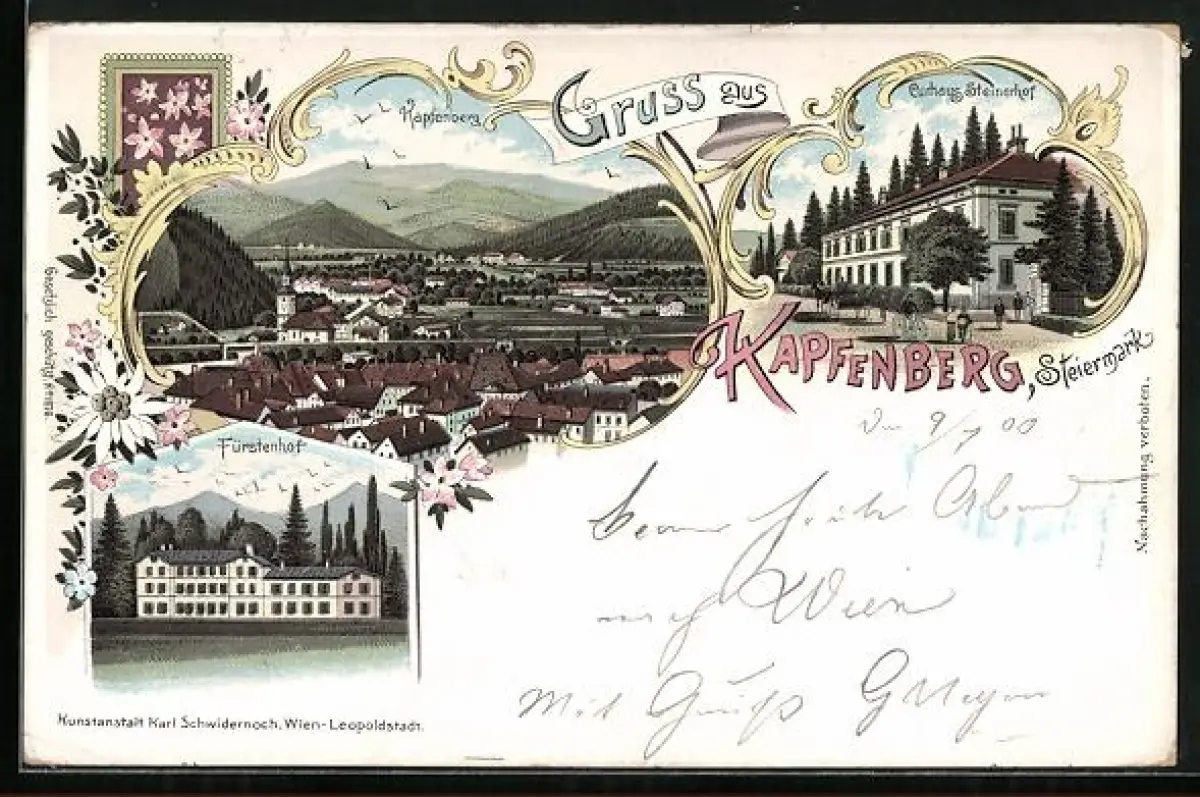 Gruss aus
Kapfenberg
Curhaus Steinerhof
KAPFENBERG, Steiermark
Fürstenhof
9/ 00
heute Abend
nach Wien
Mit Gruß
Gesetzlich geschützt
Nachahmung verboten.
Kunstanstalt Karl Schwidernoch, Wien-Leopoldstadt.